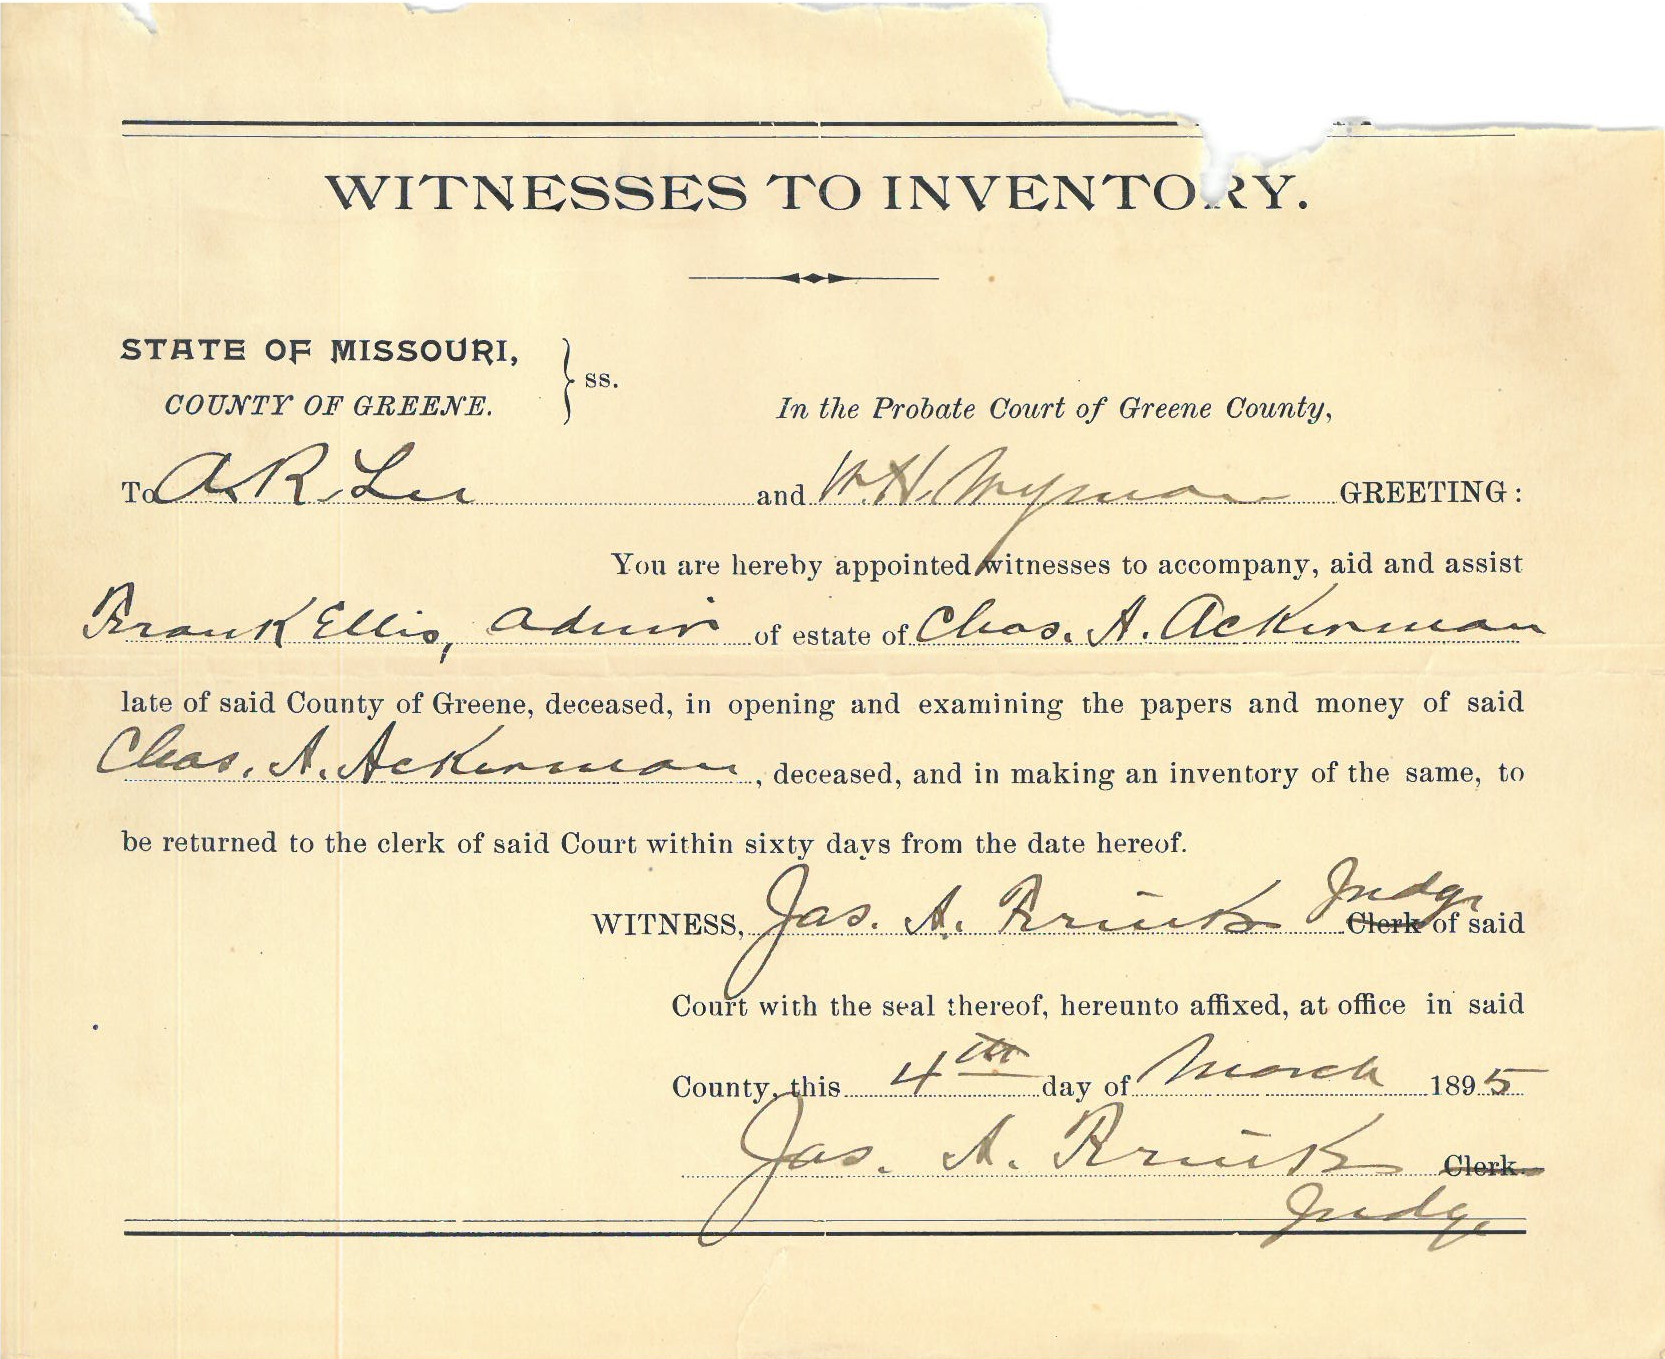 WITNESSES TO INVENTORY.
STATE OF MISSOURI,
COUNTY OF GREENE.
ss.
In the Probate Court of Greene County,
To A. R. Lee and W. H. Wyman GREETING:
You are hereby appointed witnesses to accompany, aid and assist
Frank Ellis, Admr of estate of Chas. A. Ackerman
late of said County of Greene, deceased, in opening and examining the papers and money of said
Chas. A. Ackerman, deceased, and in making an inventory of the same, to
be returned to the clerk of said Court within sixty days from the date hereof.
WITNESS, Jas. A. Frink Judge Clerk of said
Court with the seal thereof, hereunto affixed, at office in said
County, this 4th day of March 1895
Jas. A. Frink Clerk
Judge